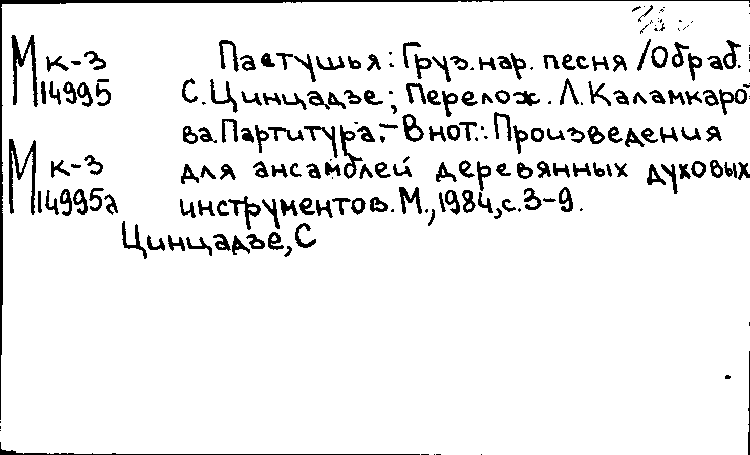 М к-3 Пастушья: Груз.нар. песня /Обраб.
14995 С.Цинцадзе; Перелож. Л.Каламкаро
ва.Партитура.-В нот.: Произведения
М к-3 для ансамблей деревянных духовых
14995а инструментов.М.,1984,с.3-9.
Цинцадзе,С